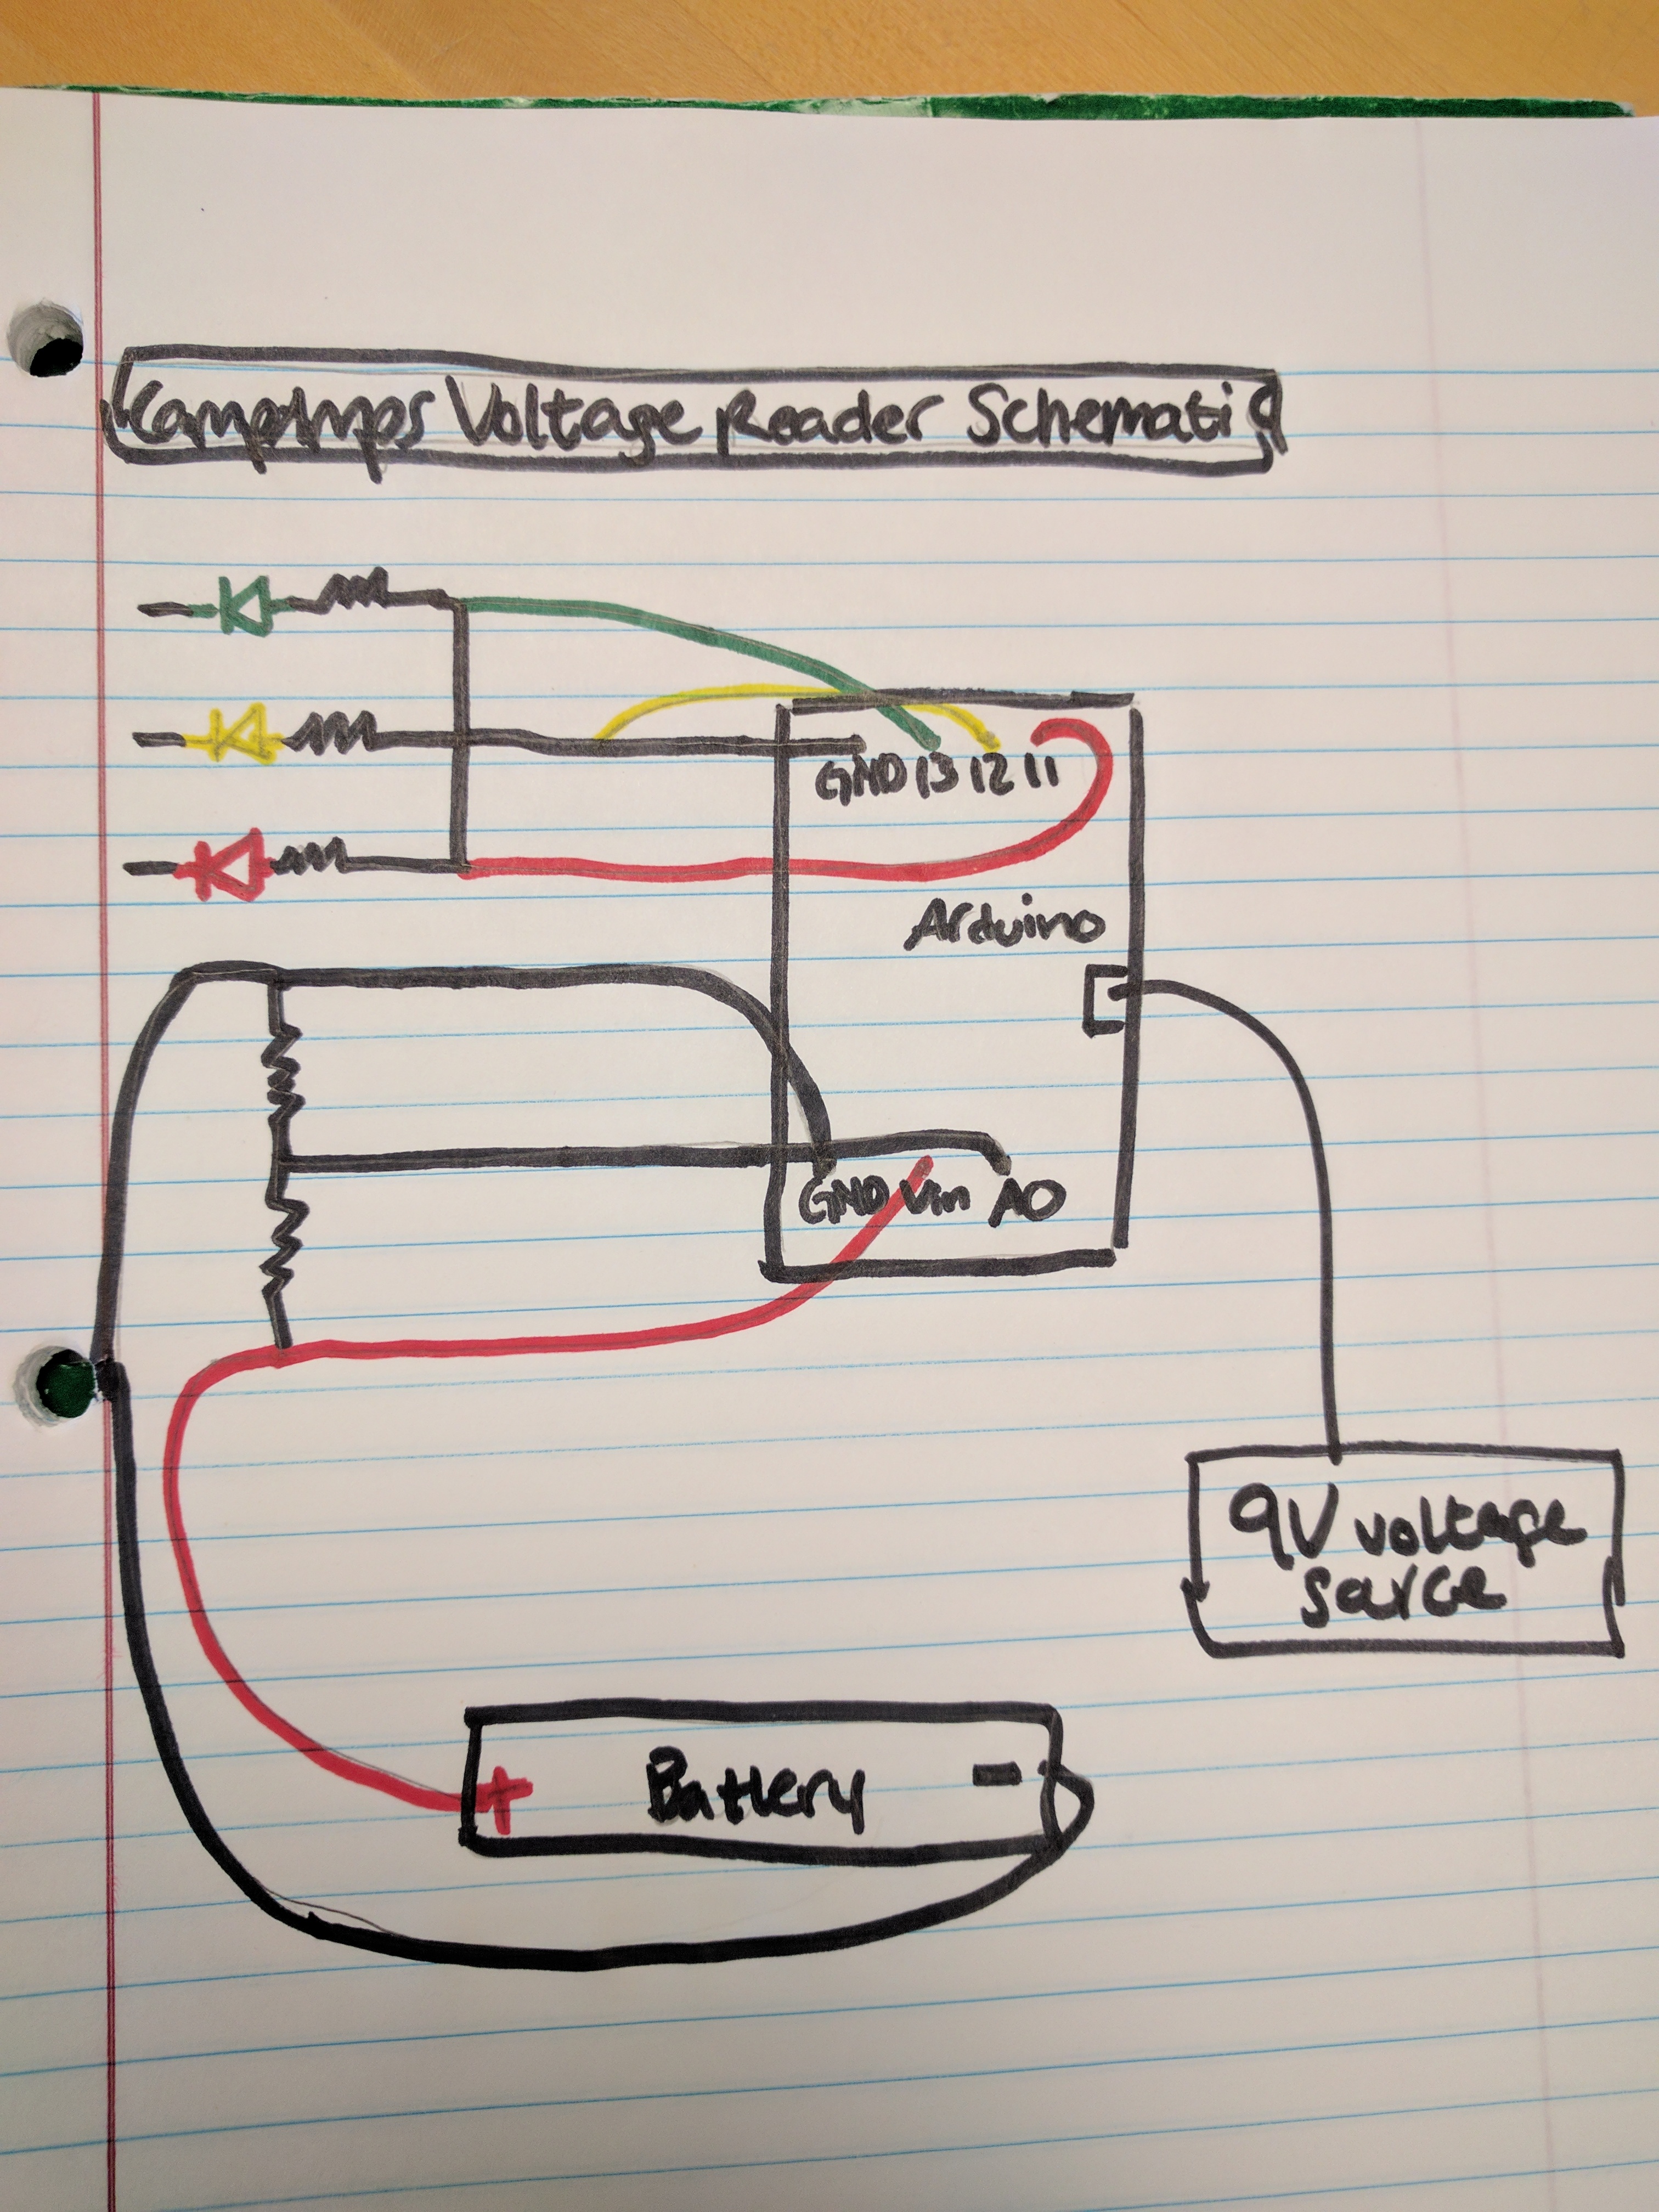 Kampdmps Voltage Reader Schematic
GND 13 12 11
Arduino
GND Vin A0
9V voltage
sarce
+ Battery -